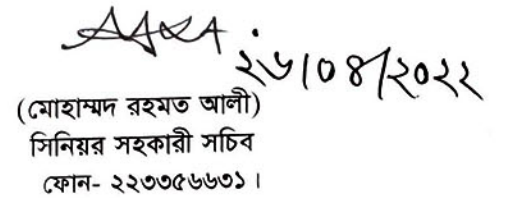 ২৬/০৪/২০২২
(মোহাম্মদ রহমত আলী)
সিনিয়র সহকারী সচিব
ফোন- ২২৩৩৫৬৬৩১।